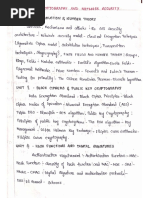 CRYPTOGRAPHY AND NETWORK SECURITY
INTRODUCTION & NUMBER THEORY
Services, Mechanisms and attacks - the OSI security
architecture - Network security model - Classical Encryption Techniques
(Symmetric cipher model, substitution techniques, transposition
techniques, steganography).
Rings, Fields - Modular Arithmetic - Euclid's algorithm - Finite
Fields - Polynomial Arithmetic - Prime numbers - Fermat's and Euler's Theorem -
Testing for primality - The Chinese Remainder Theorem - Discrete
logarithms.
UNIT 2 BLOCK CIPHERS & PUBLIC KEY CRYPTOGRAPHY
Data Encryption Standard - Block cipher Principles - Block
cipher modes of operation - Advanced Encryption Standard (AES) -
Triple DES - Blowfish - RC5 algorithm - Public key cryptography :
Principles of public key cryptosystems - The RSA algorithm - Key
Management - Diffie Hellman Key exchange - Elliptic curve
arithmetic - Elliptic curve cryptography.
UNIT 3 HASH FUNCTIONS AND DIGITAL SIGNATURES
Authentication requirement - Authentication function - MAC -
Hash function - Security of hash function and MAC - MD5 - SHA -
HMAC - CMAC - Digital signature and authentication protocols -